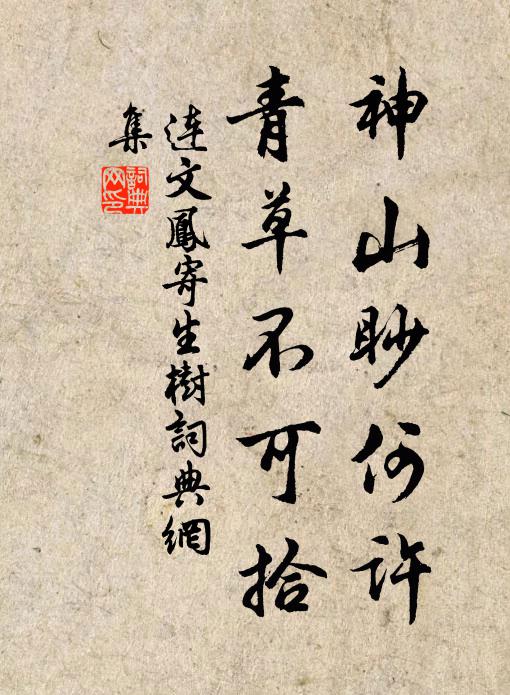 神山眇何許
青草不可拾
連文鳳寄生樹詞典網
集
詞典網印